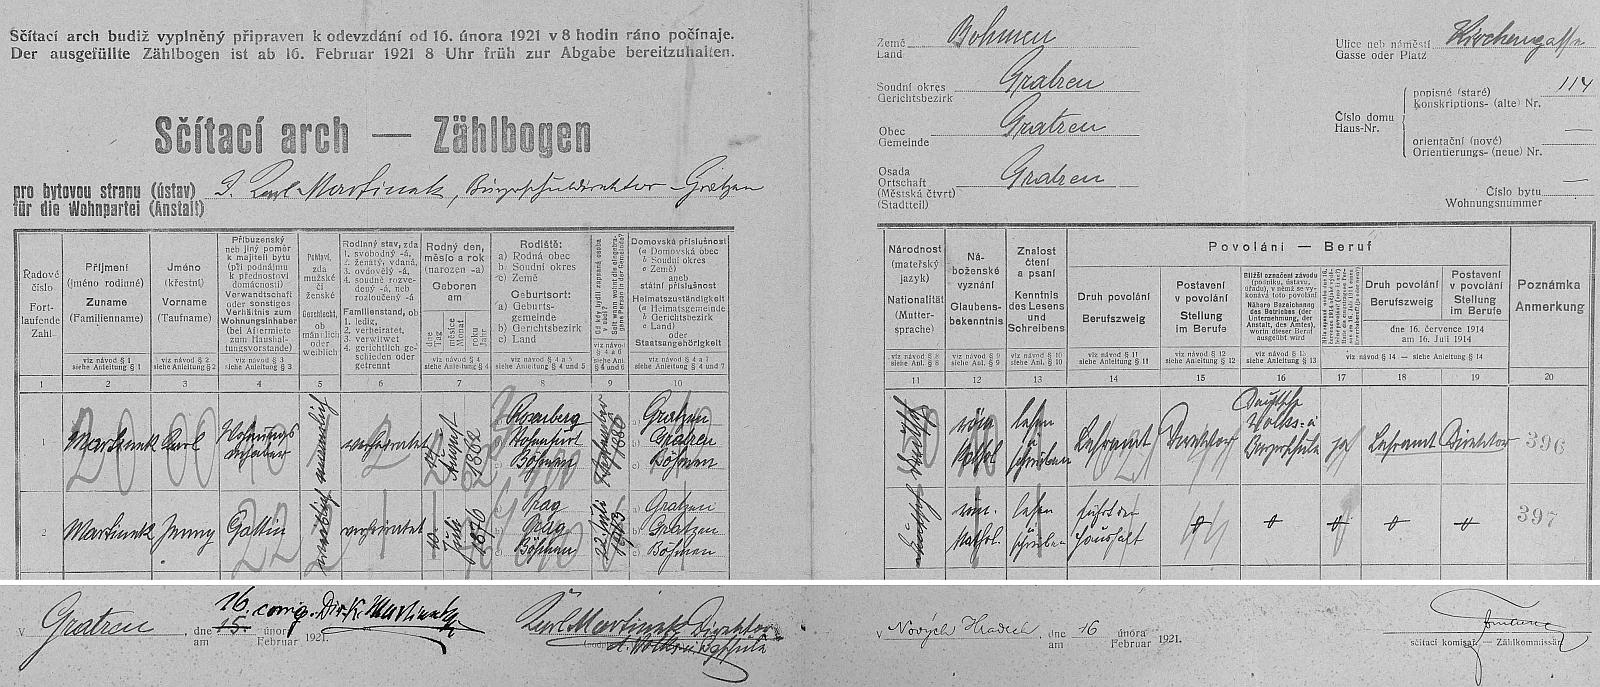 Sčítací arch budiž vyplněný připraven k odevzdání od 16. února 1921 v 8 hodin ráno počínaje.
Der ausgefüllte Zählbogen ist ab 16. Februar 1921 8 Uhr früh zur Abgabe bereitzuhalten.
Sčítací arch — Zählbogen
pro bytovou stranu (ústav)
für die Wohnpartei (Anstalt)
Karl Martinek, Bürgerschuldirektor Gratzen
Země Böhmen
Land
Soudní okres Gratzen
Gerichtsbezirk
Obec Gratzen
Gemeinde
Osada Gratzen
Ortschaft
(Městská čtvrť)
(Stadtteil)
Ulice neb náměstí Kirchengasse
Gasse oder Platz
Číslo domu
Haus-Nr.
popisné (staré) 114
Konskriptions- (alte) Nr.
orientační (nové) —
Orientierungs- (neue) Nr.
Číslo bytu —
Wohnungsnummer
Řadové číslo
Fortlaufende Zahl
Příjmení
(jméno rodinné)
Zuname
(Familienname)
viz návod § 1
siehe Anleitung § 1
Jméno
(křestní)
Vorname
(Taufname)
viz návod § 2
siehe Anleitung § 2
Příbuzenský
neb jiný poměr
k majiteli bytu
(při podnájmu
k přednostovi
domácnosti)
Verwandtschaft
oder sonstiges
Verhältnis zum
Wohnungsinhaber
(bei Aftermiete
zum Haushal-
tungsvorstande)
viz návod § 3
siehe Anleitung § 3
Pohlaví,
zda
mužské
či
ženské
Geschlecht, ob
männlich
oder
weiblich
Rodinný stav, zda
1. svobodný -á,
2. ženatý, vdaná,
3. ovdovělý -á,
4. soudně rozve-
dený -á, neb
rozloučený -á
Familienstand, ob
1. ledig,
2. verheiratet,
3. verwitwet
4. gerichtlich ge-
schieden oder
getrennt
Rodný den,
měsíc a rok
(narozen -a)
Geboren
am
dne
Tag
měsíce
Monat
roku
Jahr
viz návod § 4
siehe Anleitung § 4
Rodiště:
a) Rodná obec
b) Soudní okres
c) Země
Geburtsort:
a) Geburts-
gemeinde
b) Gerichtsbezirk
c) Land
viz návod § 4 a 5
siehe Anleitung § 4 und 5
Od kdy bydlí zapsaná osoba
v obci?
Seit wann wohnt die eingetra-
gene Person in der Gemeinde?
Domovská příslušnost
(a Domovská obec
b Soudní okres
c Země)
aneb
státní příslušnost
Heimatszuständigkeit
(a Heimatsgemeinde
b Gerichtsbezirk
c Land)
oder
Staatsangehörigkeit
viz návod § 4 a 7
siehe Anleitung § 4 und 7
Národnost
(mateřský
jazyk)
Nationalität
(Mutter-
sprache)
viz návod § 8
siehe Anleitung § 8
Ná-
boženské
vyznání
Glaubens-
bekenntnis
viz návod § 9
siehe Anleitung § 9
Znalost
čtení
a psaní
Kenntnis
des Lesens
und
Schreibens
viz návod § 10
siehe Anleitung § 10
Povolání — Beruf
Druh povolání
Berufszweig
viz návod § 11
siehe Anleitung § 11
Postavení
v povolání
Stellung
im Berufe
viz návod § 12
siehe Anleitung § 12
Bližší označení závodu
(podniku, ústavu,
úřadu), v němž se vy-
konává toto povolání
Nähere Bezeichnung
des Betriebes (der
Unternehmung, der
Anstalt, des Amtes),
worin dieser Beruf
ausgeübt wird
viz návod § 13
siehe Anleitung § 13
Druh povolání
Berufszweig
Postavení
v povolání
Stellung
im Berufe
dne 16. července 1914
am 16. Juli 1914
viz návod § 14 — siehe Anleitung § 14
Poznámka
Anmerkung
1 2 3 4 5 6 7 8 9 10 11 12 13 14 15 16 17 18 19 20
1 Martinek Karl Wohnungs Inhaber männlich verheiratet 17 August 1882
a) Rosenberg
b) Hohenfurt
c) Böhmen
September
a) Gratzen
b) Gratzen
c) Böhmen
deutsch röm. kathol. lesen schreiben Lehramt Direktor Deutsche Volks- u Bürgerschule ja Lehramt Direktor 396
2 Martinek Jenny Gattin weiblich verheiratet 10 Juli 1876
a) Prag
b) Prag
c) Böhmen
22. Juli 1913
a) Gratzen
b) Gratzen
c) Böhmen
deutsch röm. kathol. lesen schreiben führt den Haushalt 397
v Gratzen, dne 16. 15. února 1921.
am Februar
corrig. Dir. K. Martinek
Karl Martinek Direktor
v Nových Hradech, dne 16 února 1921.
am Februar
sčítací komisař — Zählkommissär